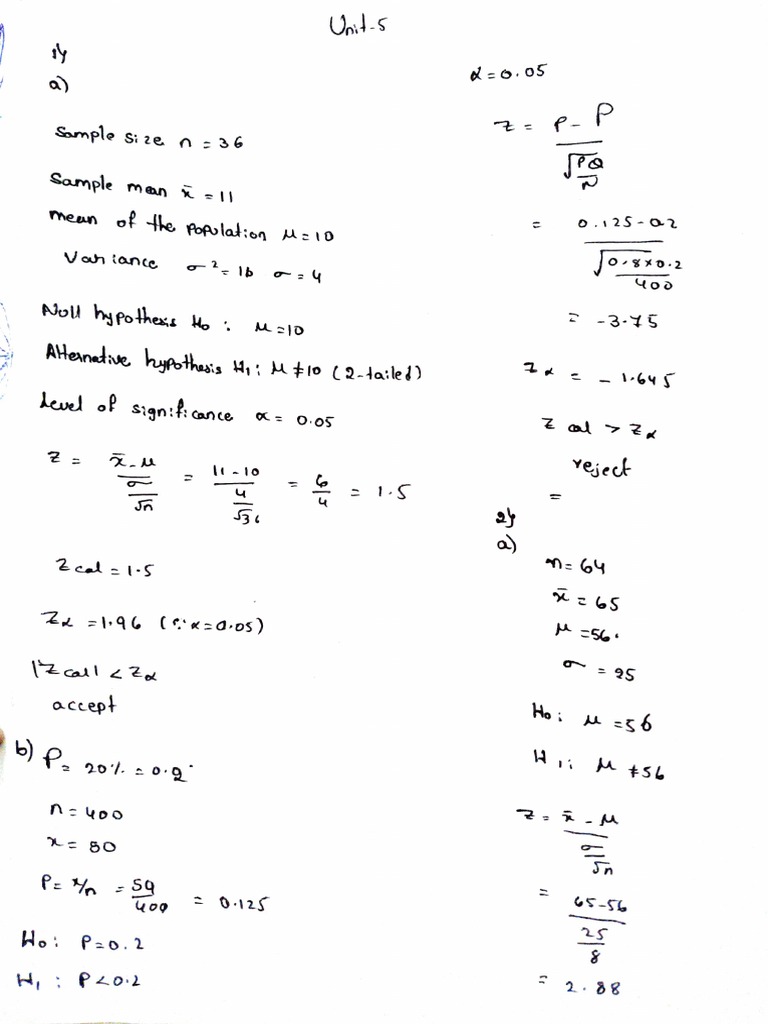 Unit-5
1)
a)
Sample size n = 36
Sample mean x̄ = 11
mean of the population μ = 10
Variance σ² = 16 σ = 4
Null hypothesis H₀ : μ = 10
Alternative hypothesis H₁ : μ ≠ 10 (2-tailed)
Level of significance α = 0.05
Z = (x̄ - μ)/(σ/√n) = (11 - 10)/(4/√36) = 6/4 = 1.5
Z cal = 1.5
Zα = 1.96 (∵ α = 0.05)
|Z cal| < Zα
accept
b) P = 20% = 0.2
n = 400
x = 50
P = x/n = 50/400 = 0.125
H₀ : P = 0.2
H₁ : P < 0.2
α = 0.05
Z = (p - P)/√(PQ/N)
= (0.125 - 0.2)/√(0.8 × 0.2/400)
= -3.75
Zα = -1.645
Z cal > Zα
reject
=
2)
a)
n = 64
x̄ = 65
μ = 56.
σ = 25
H₀ : μ = 56
H₁ : μ ≠ 56
Z = (x̄ - μ)/(σ/√n)
= (65 - 56)/(25/8)
= 2.88